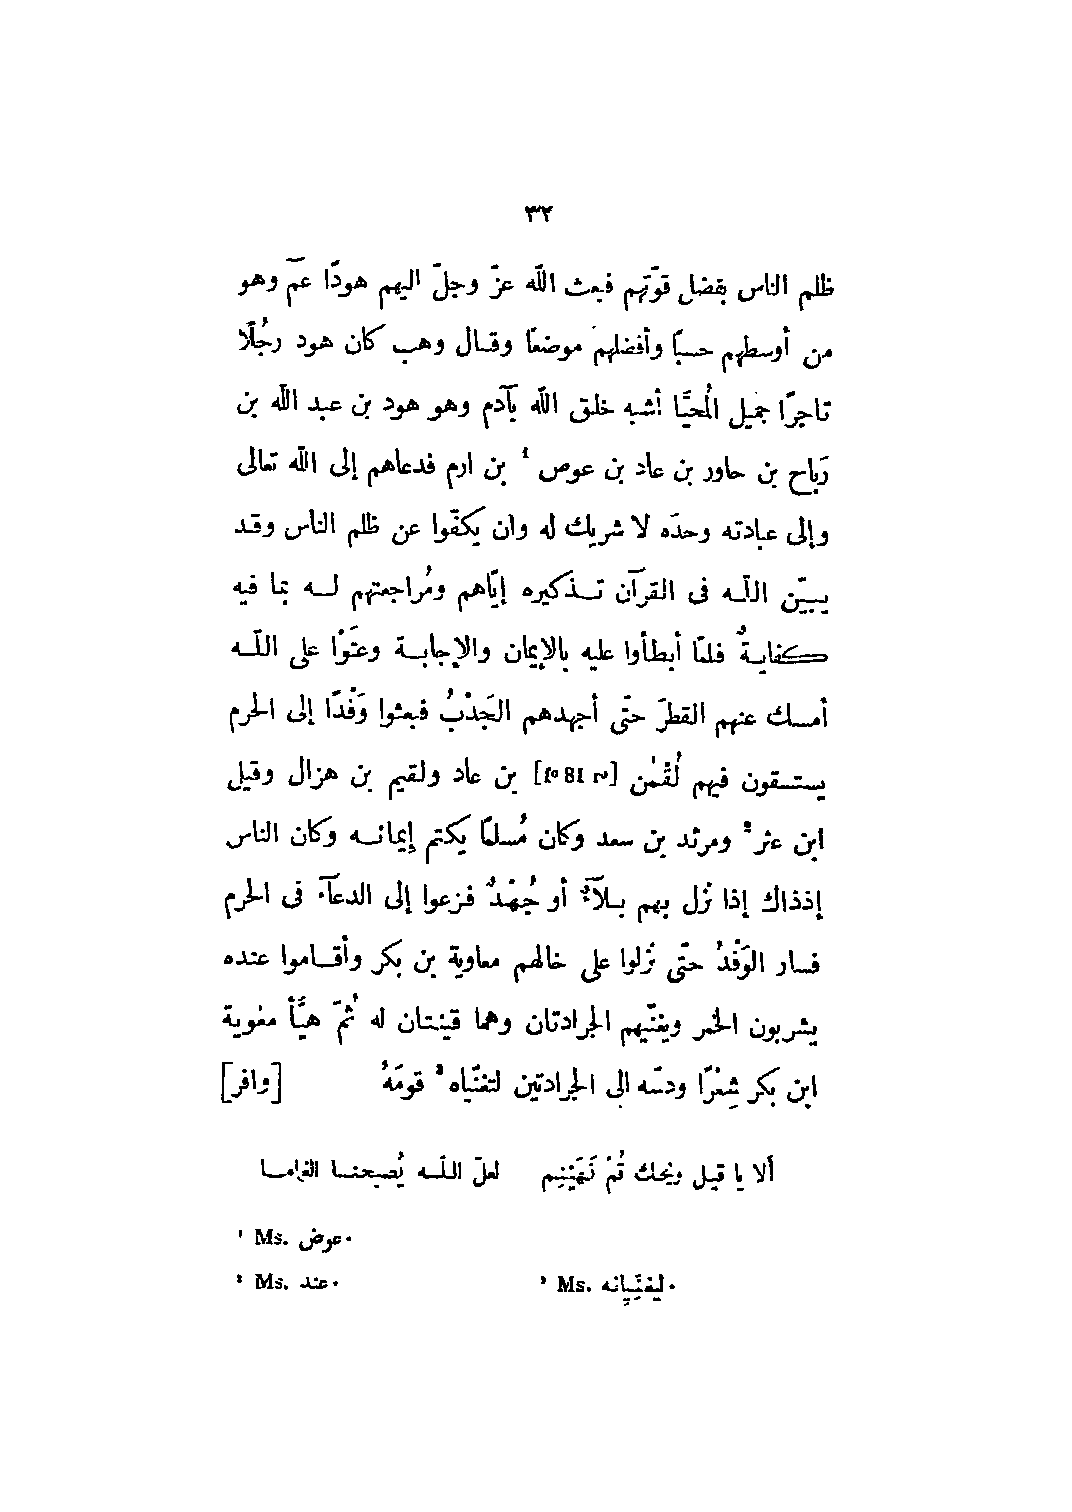 ٣٢
ظلم الناس بفضل قوّتهم فبعث اللّه عزّ وجلّ اليهم هودًا عمّ وهو
من أوسطهم حسبًا وأفضلهم موضعًا وقال وهب كان هود رجُلًا
تاجرًا جميل المُحيَّا أشبه خلق اللّه بآدم وهو هود بن عبد اللّه بن
رَباح بن حاور بن عاد بن عوص ¹ بن ارم فدعاهم إلى اللّه تعالى
وإلى عبادته وحدَه لا شريك له وان يكفّوا عن ظلم الناس وقد
يبيّن اللّه فى القرآن تذكيره إيّاهم ومُراجعتهم له بما فيه
كفايةٌ فلمّا أبطأوا عليه بالإيمان والإجابة وعتَوْا على اللّه
أمسك عنهم القطرَ حتّى أجهدهم الجَدْبُ فبعثوا وَفْدًا إلى الحرم
يستسقون فيهم لُقْمٰن [fº 81 rº] بن عاد ولقيم بن هزال وقيل
ابن عثر ² ومرثد بن سعد وكان مُسلمًا يكتم إيمانه وكان الناس
إذذاك إذا نزل بهم بلآءٌ أو جُهْدٌ فزعوا إلى الدعآء فى الحرم
فسار الوَفْدُ حتّى نزلوا على خالهم معاوية بن بكر وأقاموا عنده
يشربون الخمر ويغنّيهم الجرادتان وهما قينتان له ثمّ هيَّأ معٰوية
ابن بكر شِعْرًا ودسّه الى الجرادتين لتغنّياه ³ قومَهُ [وافر]
ألا يا قيل ويحك قُمْ فَهَيْنِم لعلّ اللّه يُصبحنا الغماما
¹ Ms. عوض.
² Ms. عند.
³ Ms. ليغنِّيانه.